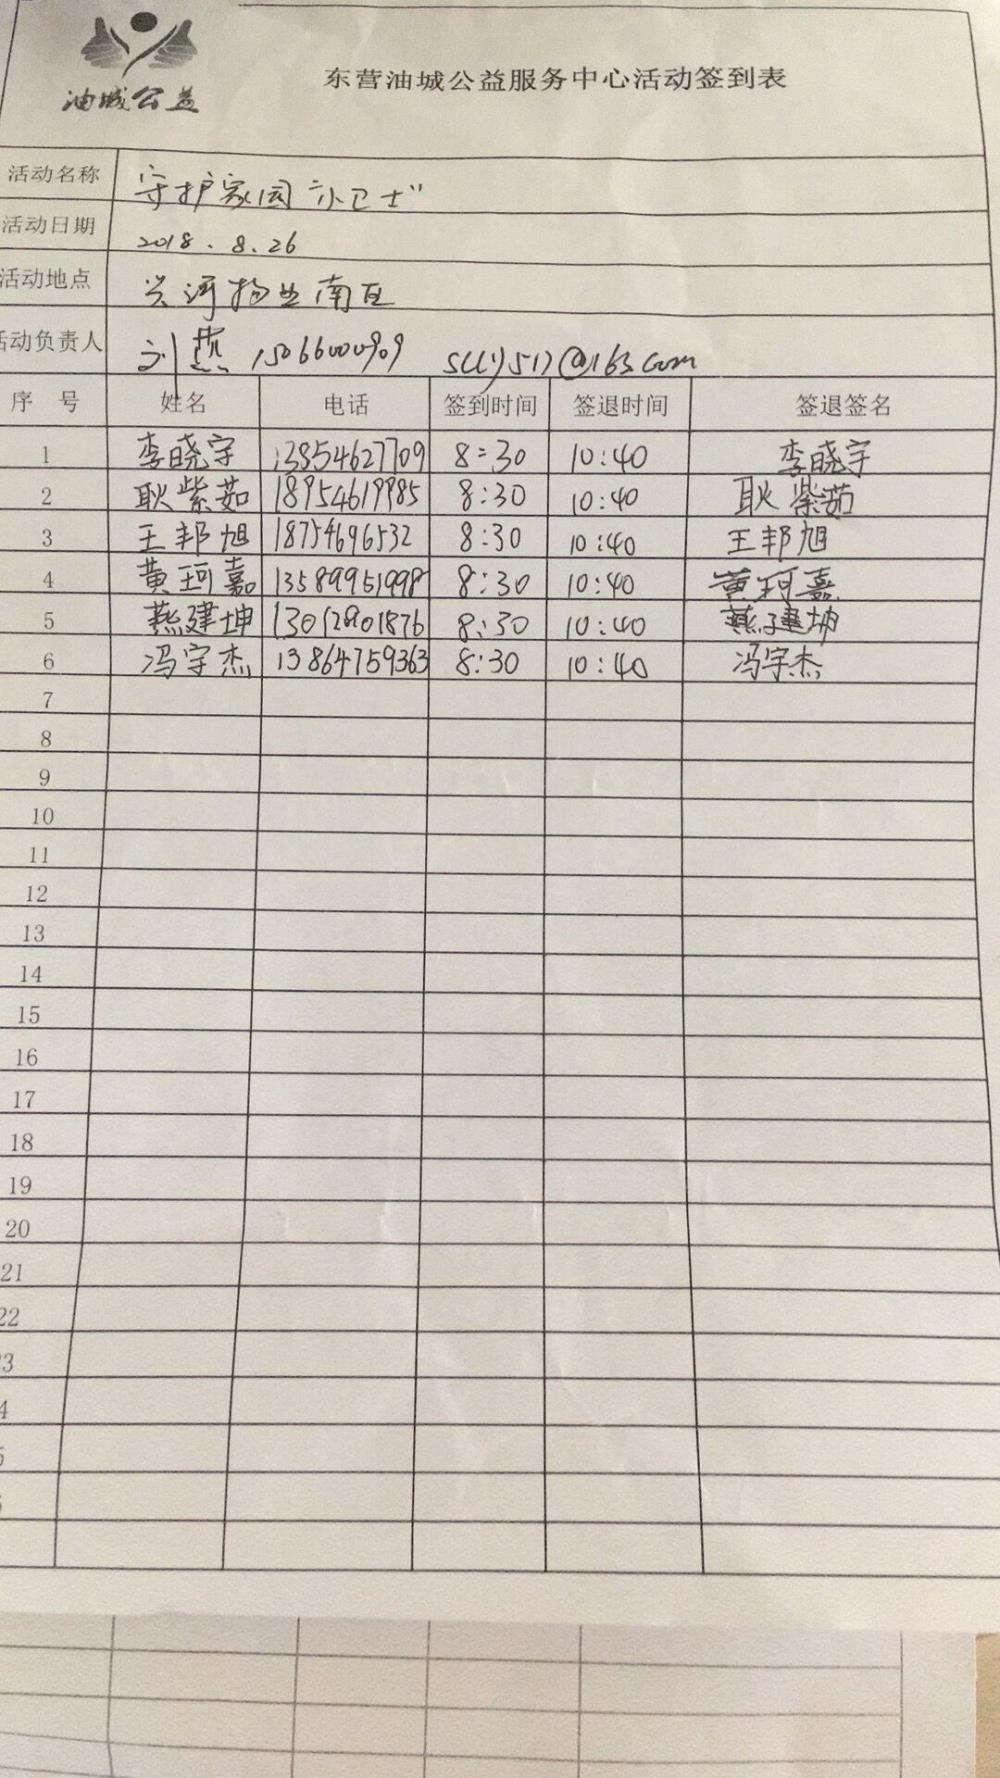 油城公益
东营油城公益服务中心活动签到表
活动名称 守护家园“小卫士”
活动日期 2018.8.26
活动地点 兴河物业南区
活动负责人 刘燕 15066000909
序号 姓名 电话 签到时间 签退时间 签退签名
1 李晓宇 13854627709 8:30 10:40 李晓宇
2 耿紫茹 18954619985 8:30 10:40 耿紫茹
3 王邦旭 18754696532 8:30 10:40 王邦旭
4 黄珂嘉 13589951998 8:30 10:40 黄珂嘉
5 燕建坤 13012901876 8:30 10:40 燕建坤
6 冯宇杰 13864759363 8:30 10:40 冯宇杰
7
8
9
10
11
12
13
14
15
16
17
18
19
20
21
22
3
4
5